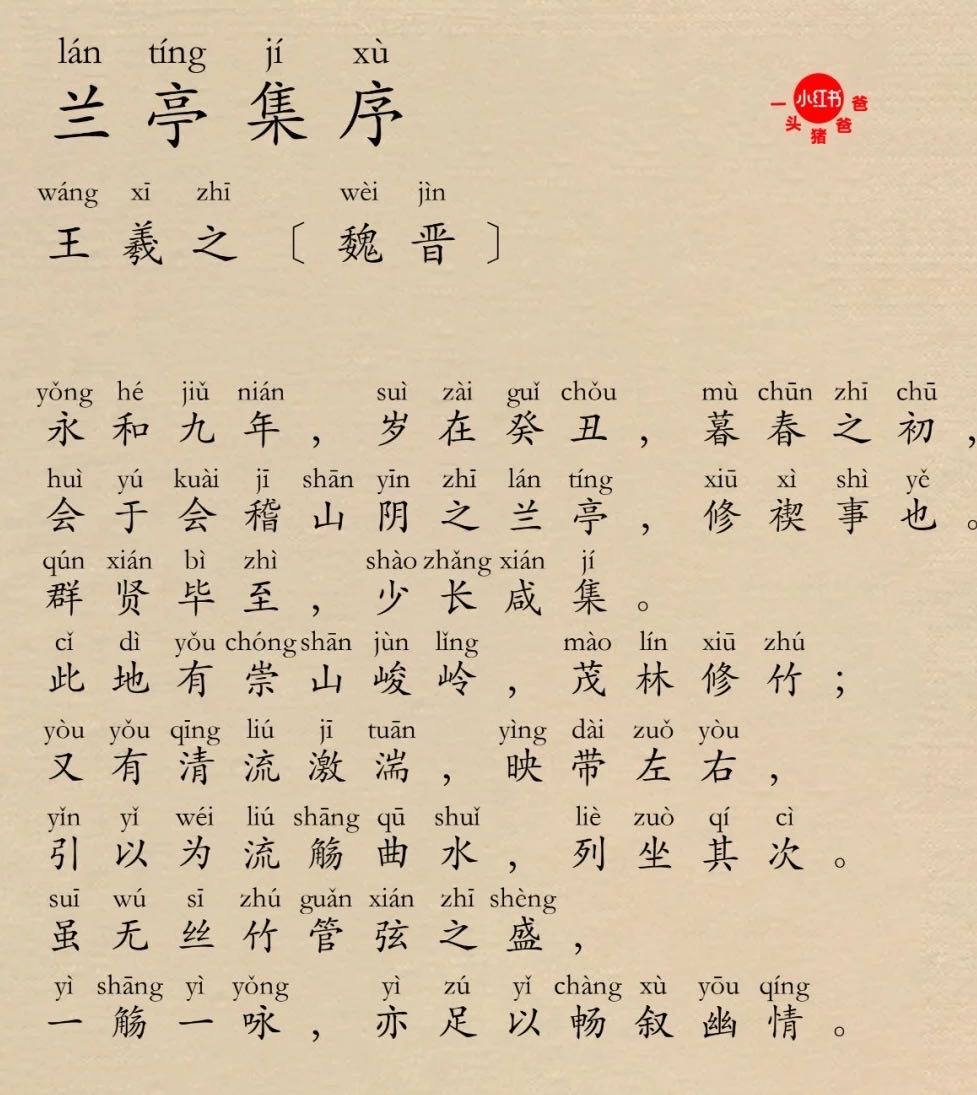 lán tíng jí xù
兰亭集序
小红书
一头猪爸爸
wáng xī zhī wèi jìn
王羲之〔魏晋〕
yǒng hé jiǔ nián suì zài guǐ chǒu mù chūn zhī chū
永和九年，岁在癸丑，暮春之初，
huì yú kuài jī shān yīn zhī lán tíng xiū xì shì yě
会于会稽山阴之兰亭，修禊事也。
qún xián bì zhì shào zhǎng xián jí
群贤毕至，少长咸集。
cǐ dì yǒu chóng shān jùn lǐng mào lín xiū zhú
此地有崇山峻岭，茂林修竹；
yòu yǒu qīng liú jī tuān yìng dài zuǒ yòu
又有清流激湍，映带左右，
yǐn yǐ wéi liú shāng qū shuǐ liè zuò qí cì
引以为流觞曲水，列坐其次。
suī wú sī zhú guǎn xián zhī shèng
虽无丝竹管弦之盛，
yì shāng yì yǒng yì zú yǐ chàng xù yōu qíng
一觞一咏，亦足以畅叙幽情。